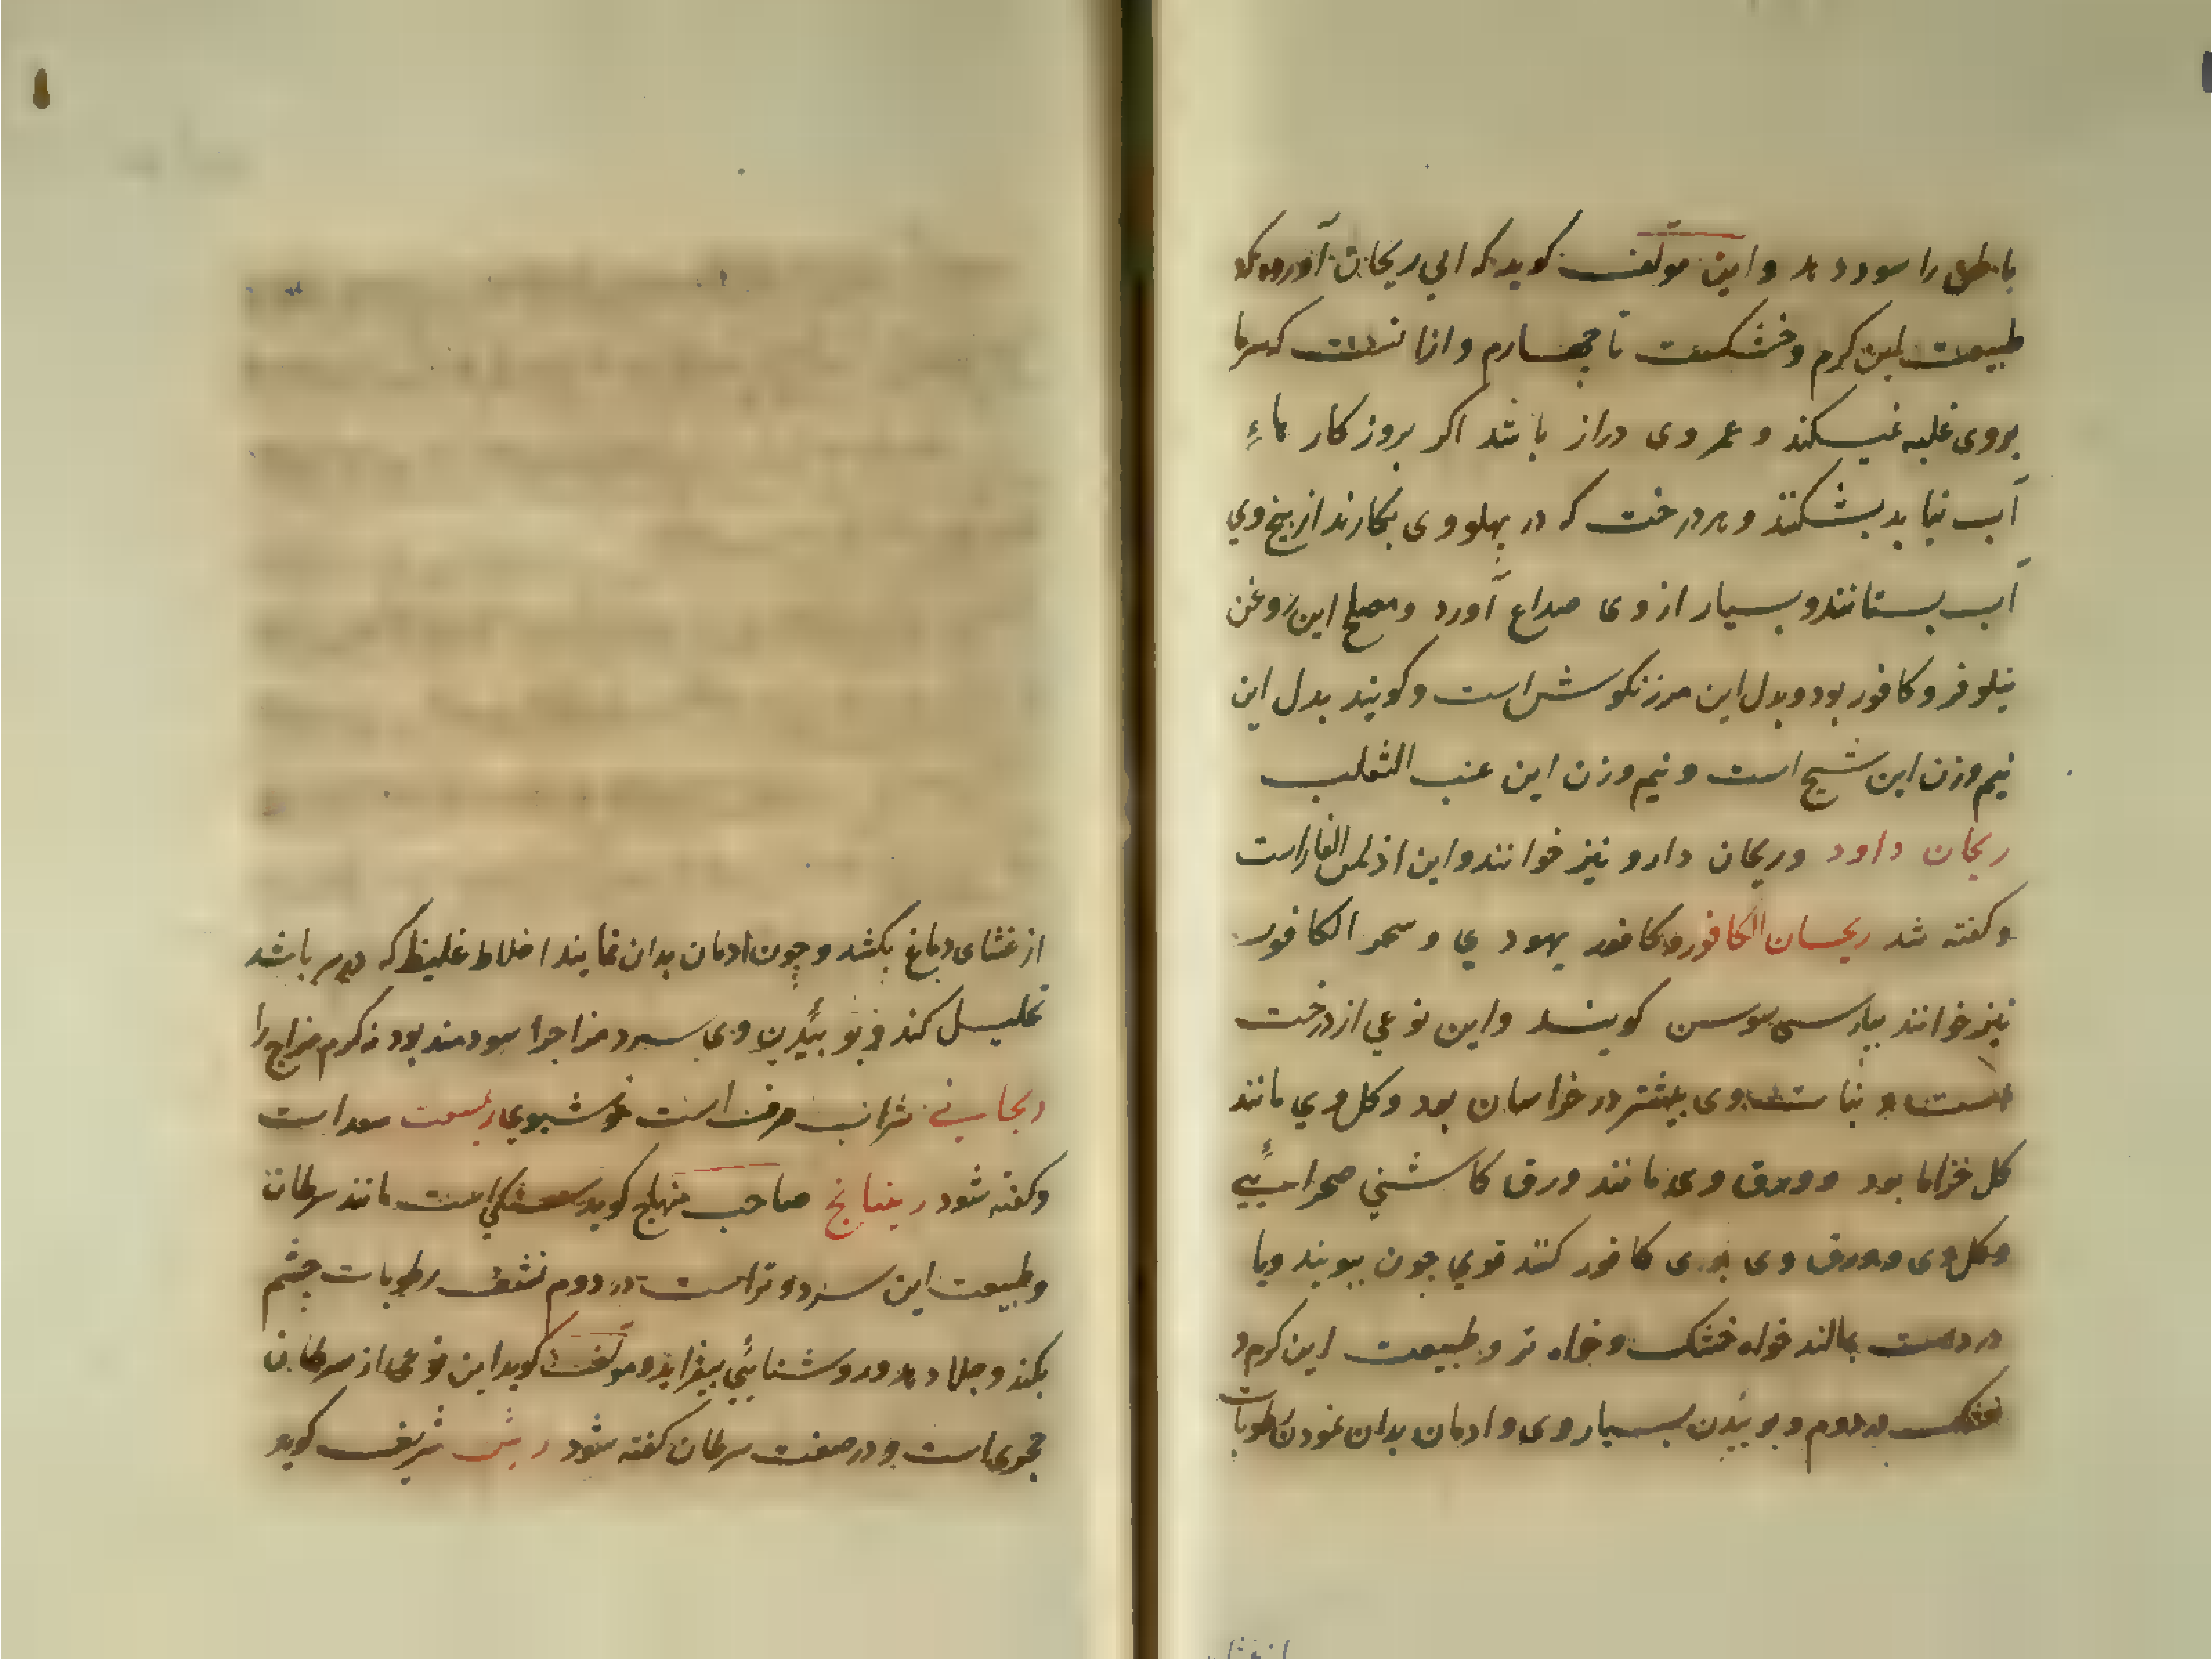 باطل را سود دهد و این مولف کوید که ابی ریحان آورده که
طبیعت این کرم و خشکست تا چهارم و ازانست که سرما
بروی غلبه نمیکند و عمر وی دراز باشد اکر بروزکار ماءِ
آب نیابد بشکند و هر درخت که در پهلو وی بکارند از بیخ وی
آب بستانند و بسیار از وی صداع آورد و مصلح این روغن
نیلوفر و کافور بود و بدل این مرزنکوش است و کویند بدل این
نیم وزن این شیح است و نیم وزن این عنب الثعلب
ریحان داود و ریحان دارو نیز خوانند و این اذان الفار است
و کفته شد ریحان الکافور و کافور یهودی و سحر الکافور
نیز خوانند بپارسی سوسن کویند و این نوعی از درخت
است و نبات وی بیشتر در خراسان بود و کل وی مانند
کل خزاما بود و ورق وی مانند ورق کاشنی صحرایی
و کل وی و ورق وی بوی کافور کند قوی چون ببویند ویا
در دست بمالند خواه خشک و خواه تر و طبیعت این کرم و
خشک در دوم و بوییدن بسیار وی و ادمان بدان نمودن رطوبات
از غشای
از غشای دماغ بکشد و چون ادمان بدان نمایند اخلاط غلیظ که در سر باشد
تحلیل کند و بوییدن وی سرد مزاج را سودمند بود نه کرم مزاج را
ریحانی شراب صرف است خوشبوی ریست سعد است
و کفته شود رینانج صاحب منهاج کوید سنکی است مانند سرطان
و طبیعت این سرد و تر است در دوم نشف رطوبات چشم
بکند و جلا دهد و روشنایی بیفزاید و مولف کوید این نوعی از سرطان
بحری است و در صفت سرطان کفته شود ریش شریف کوید